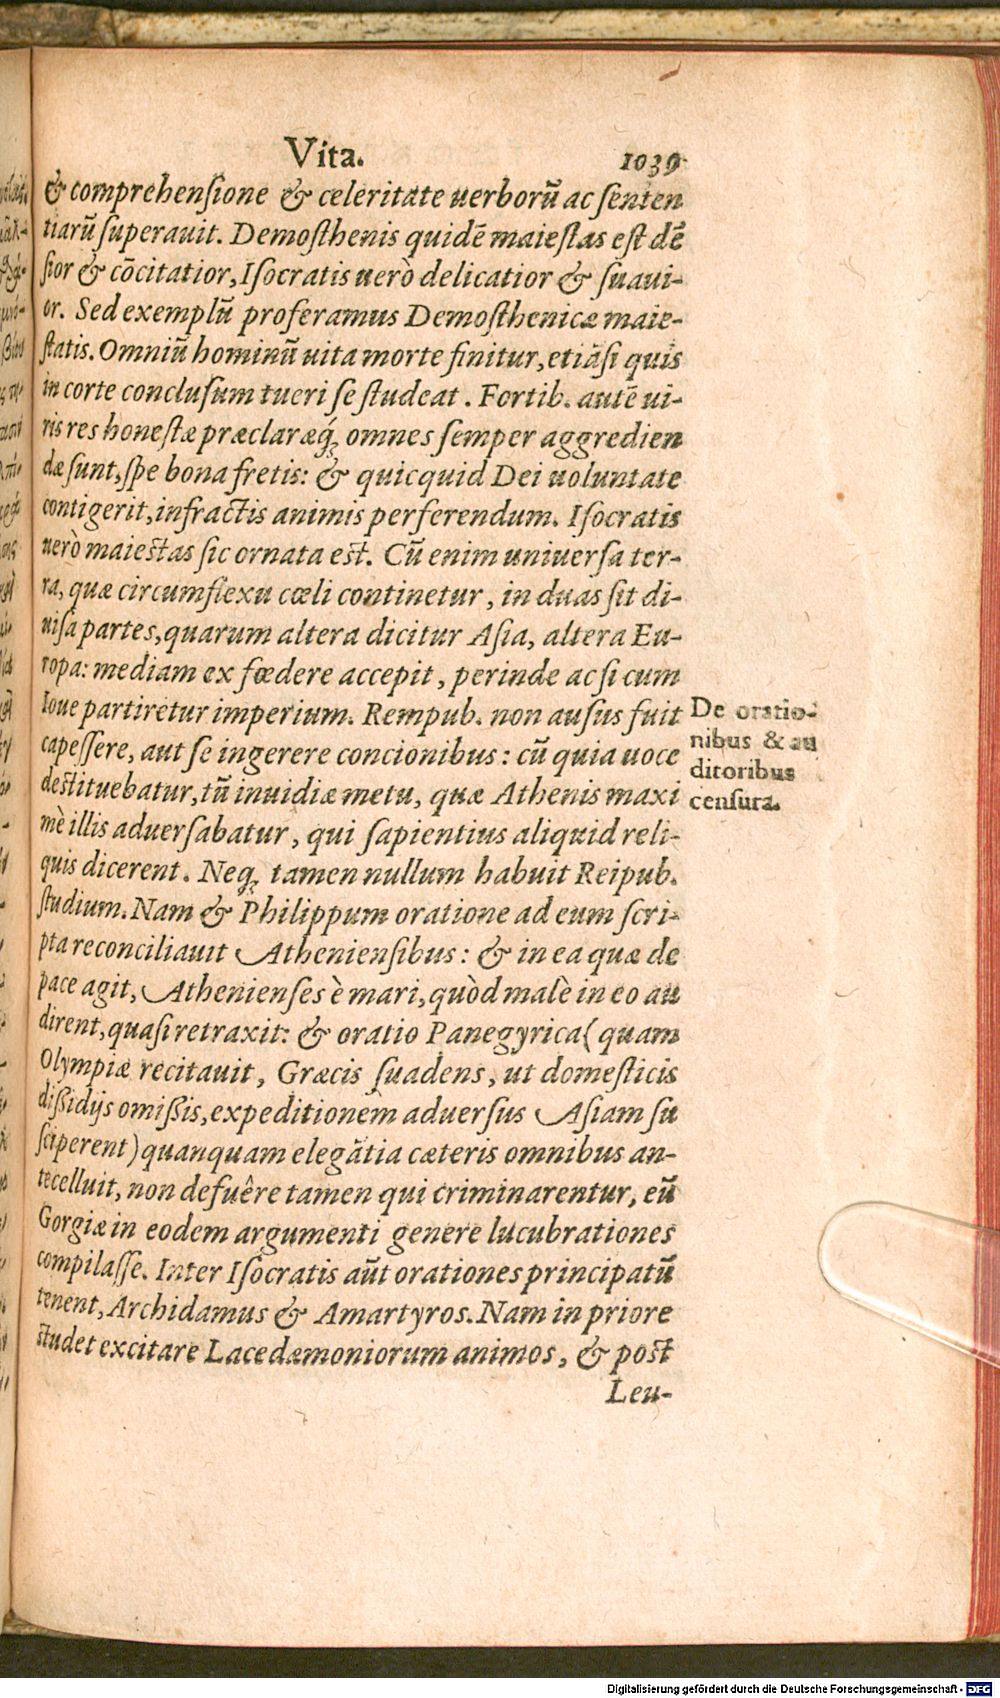 Vita. 1039
& comprehensione & celeritate uerborū ac senten
tiarū superauit. Demosthenis quidē maiestas est dē
sior & cōcitatior, Isocratis uerò delicatior & suaui-
or. Sed exemplū proferamus Demosthenicæ maie-
statis. Omniū hominū uita morte finitur, etiāsi quis
in corte conclusum tueri se studeat. Fortib. autē ui-
ris res honestæ præclaræq́; omnes semper aggredien
dæ sunt, spe bona fretis: & quicquid Dei uoluntate
contigerit, infractis animis perferendum. Isocratis
uerò maiestas sic ornata est. Cū enim uniuersa ter-
ra, quæ circumflexu cœli continetur, in duas sit di-
uisa partes, quarum altera dicitur Asia, altera Eu-
ropa: mediam ex fœdere accepit, perinde ac si cum
Ioue partiretur imperium. Rempub. non ausus fuit
capessere, aut se ingerere concionibus: cū quia uoce
destituebatur, tū inuidiæ metu, quæ Athenis maxi
mè illis aduersabatur, qui sapientius aliquid reli-
quis dicerent. Neq; tamen nullum habuit Reipub.
studium. Nam & Philippum oratione ad eum scri-
pta reconciliauit Atheniensibus: & in ea quæ de
pace agit, Athenienses è mari, quòd malè in eo au
dirent, quasi retraxit: & oratio Panegyrica (quam
Olympiæ recitauit, Græcis suadens, ut domesticis
dissidijs omissis, expeditionem aduersus Asiam su
sciperent) quanquam elegātia cæteris omnibus an-
tecelluit, non defuêre tamen qui criminarentur, eū
Gorgiæ in eodem argumenti genere lucubrationes
compilasse. Inter Isocratis aūt orationes principatū
tenent, Archidamus & Amartyros. Nam in priore
studet excitare Lacedæmoniorum animos, & post
Leu-
De oratio-
nibus & au
ditoribus
censura.
Digitalisierung gefördert durch die Deutsche Forschungsgemeinschaft - DFG